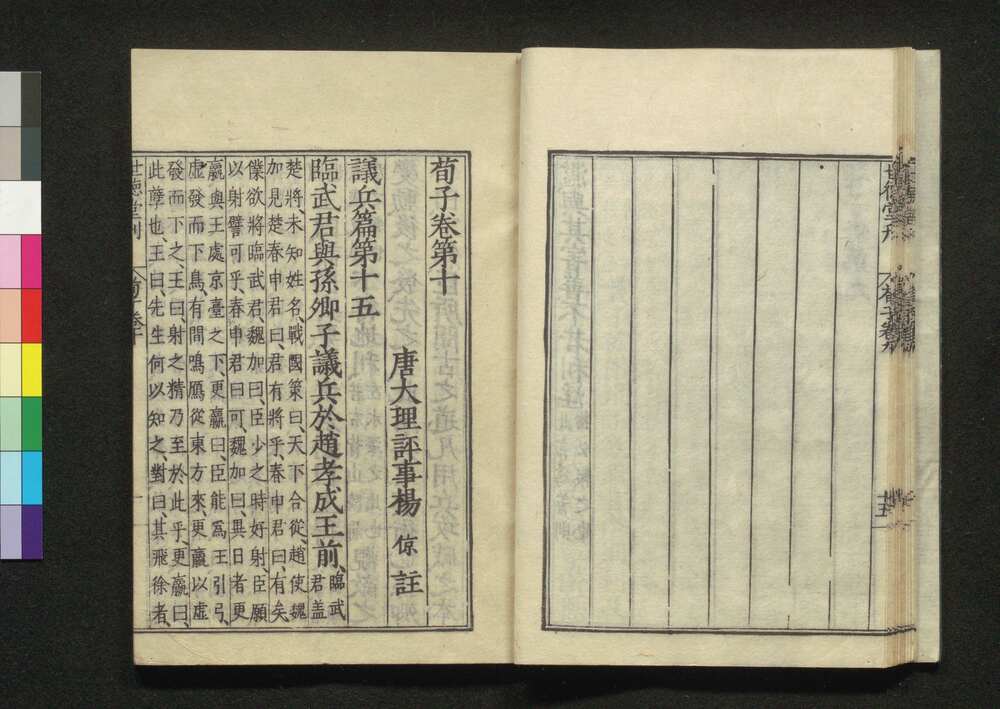 荀子卷第十
唐大理評事楊倞註
議兵篇第十五
臨武君與孫卿子議兵於趙孝成王前、臨武
君蓋
楚將、未知姓名、戰國策曰、天下合從、趙使魏
加見楚春申君曰、君有將乎春申君曰、有矣、
僕欲將臨武君、魏加曰、臣少之時好射、臣願
以射譬可乎、春申君曰可、魏加曰、異日者更
羸與王處京臺之下、更羸曰、臣能爲王引弓、
虛發而下鳥、有間鳴鴈從東方來、更羸以虛
發而下之王曰、射之精乃至於此乎、更羸曰、
此孽也、王曰、先生何以知之、對曰、其飛徐者、
世德堂刊